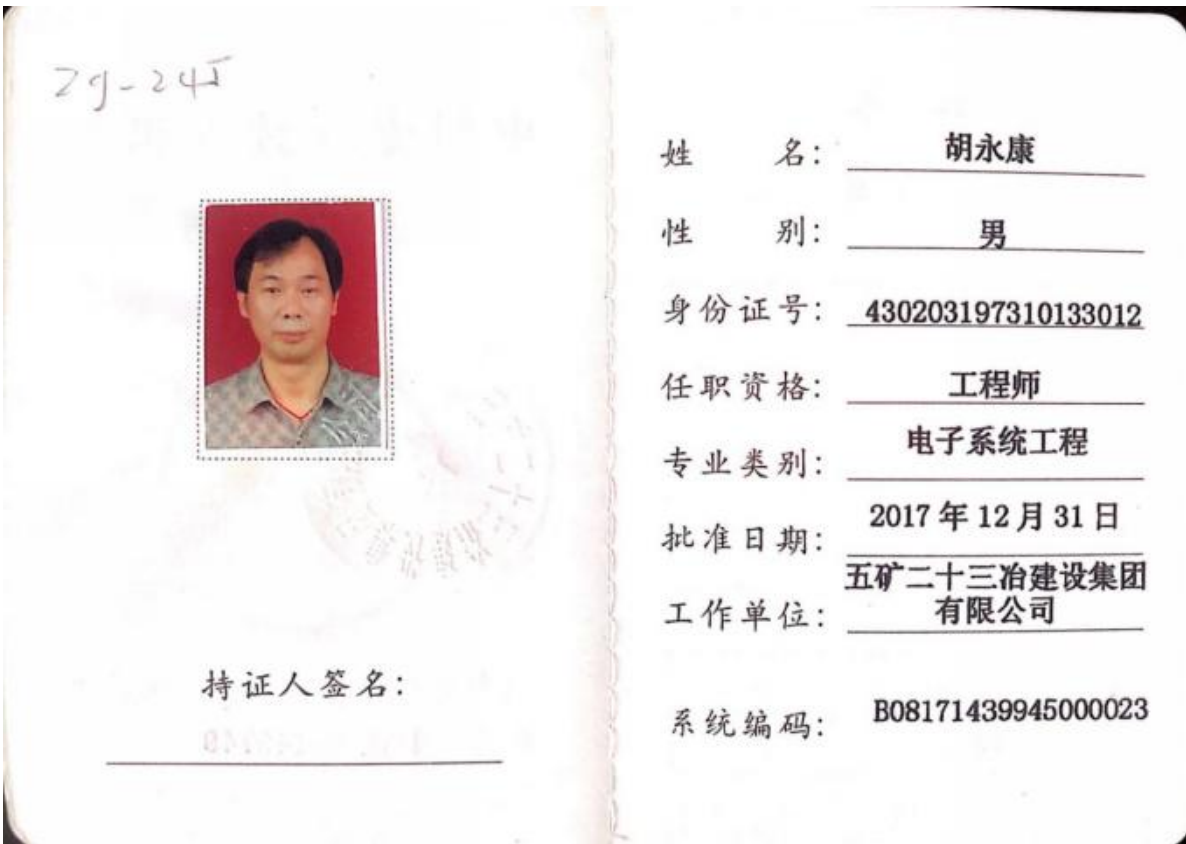 zg-245
持证人签名:
姓 名: 胡永康
性 别: 男
身份证号: 430203197310133012
任职资格: 工程师
专业类别: 电子系统工程
批准日期: 2017年12月31日
工作单位: 五矿二十三冶建设集团
有限公司
系统编码: B08171439945000023